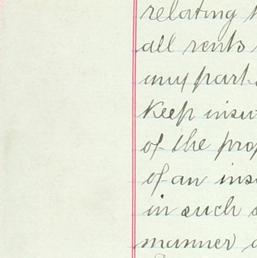 relating
all rents
any part
Keep insu
of the prop
of an ins
in such
manner